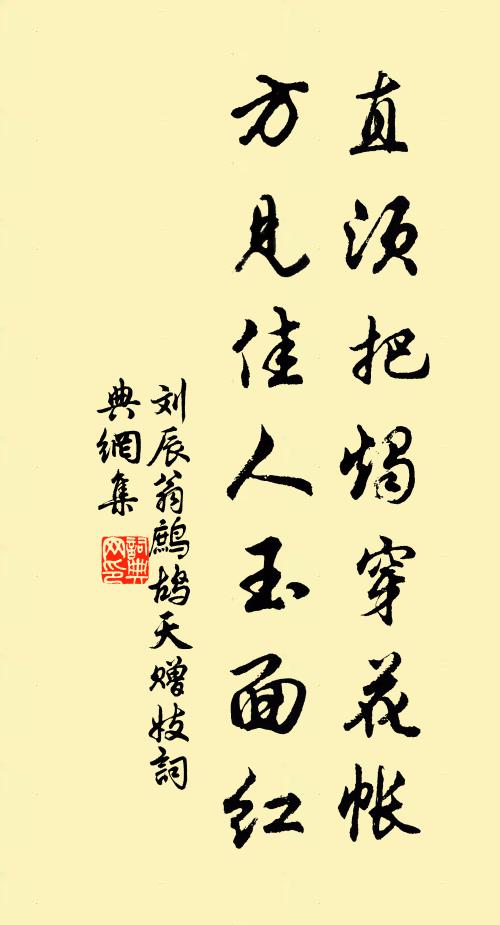 直须把烛穿花帐
方见佳人玉面红
刘辰翁鹧鸪天赠妓詞
典網集
詞典網印